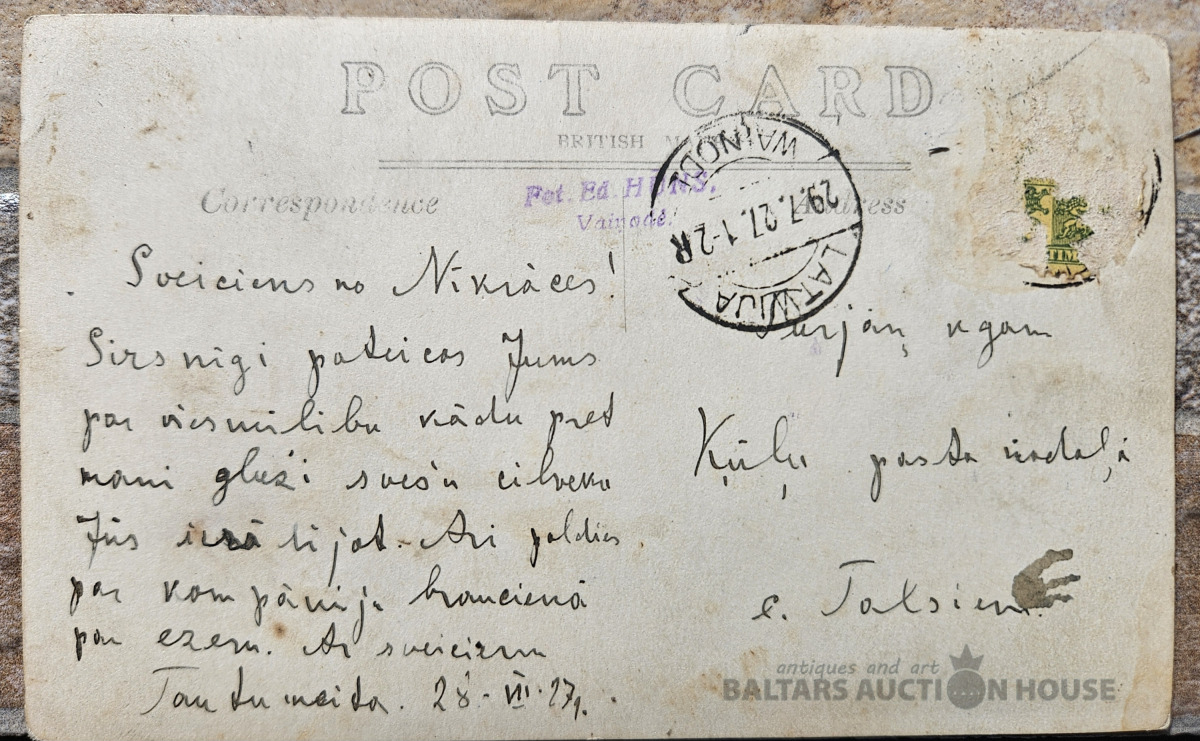 POST CARD
BRITISH
Correspondence
Address
Fot. Ed. HUNS.
Vaiņodē.
WAINODE
29.7.27.1-2R
LATWIJA
Sveiciens no Nīkrāces!
Sirsnīgi pateicos Jums
par viesmilibu kādu pret
mani gluži svešu cilveku
Jūs izrā tijat. Ari paldies
par kompāniju braucienā
par ezeru. Ar sveicienu
Tautu meita. 28-VII-27.
kgam
Ķūļu pasta nodaļā
c. Talsiem.
antiques and art
BALTARS AUCTION HOUSE